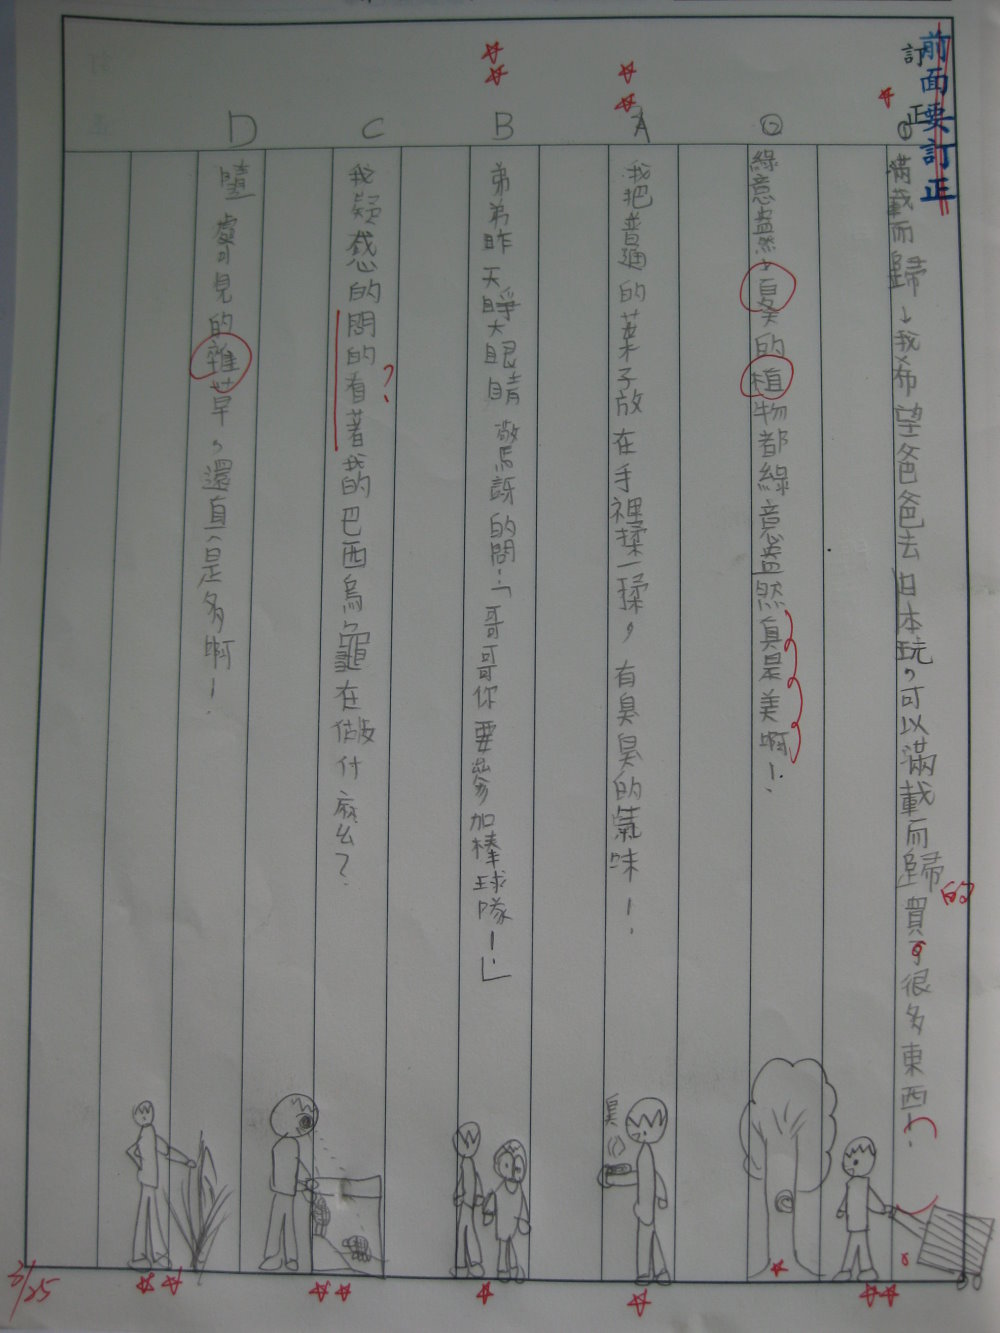 前面要訂正
訂正
① 滿載而歸↓我希望爸爸去日本玩，可以滿載而歸買了很多東西！
的
② 綠意盎然↓夏天的植物都綠意盎然真是美啊！
A 我把普通的葉子放在手裡揉一揉，有臭臭的氣味！
B 弟弟昨天睜大眼睛驚訝的問：「哥哥你要參加棒球隊！」
C 我疑惑的問的看著我的巴西烏龜在做什麼？
?
D 隨處可見的雜草，還真是多啊！
臭
3/25